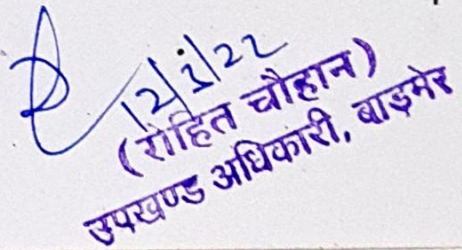 12/1/22
(रोहित चौहान)
उपखण्ड अधिकारी, बाड़मेर